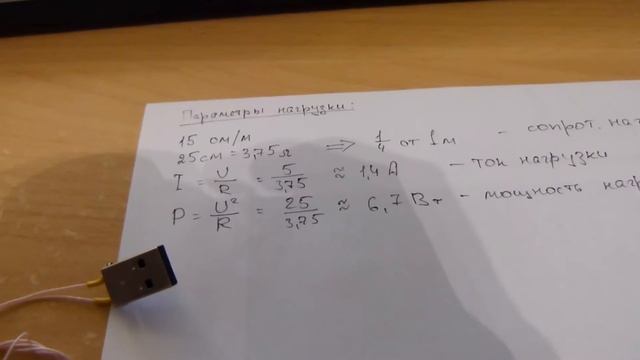 Параметры нагрузки:
15 ом/м
25см = 3,75 Ω ⇒ 1/4 от 1 м - сопрот. наг
I = U/R = 5/3,75 ≈ 1,4 А - ток нагрузки
P = U²/R = 25/3,75 ≈ 6,7 Вт - мощность нагр